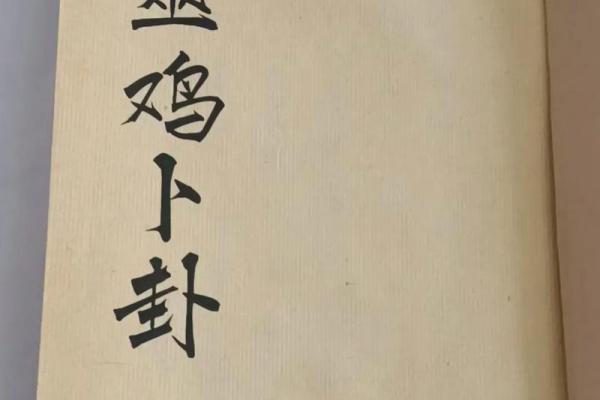 鸡卜卦